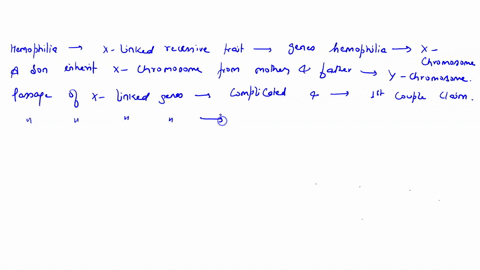 Hemophilia → X- linked recessive trait → genes hemophilia → X-Chromosome
A Son inherit X- Chromosome from mother & father → Y- Chromosome.
Passage of X- linked genes → Complicated & → 1st Couple Claim.
" " " " →